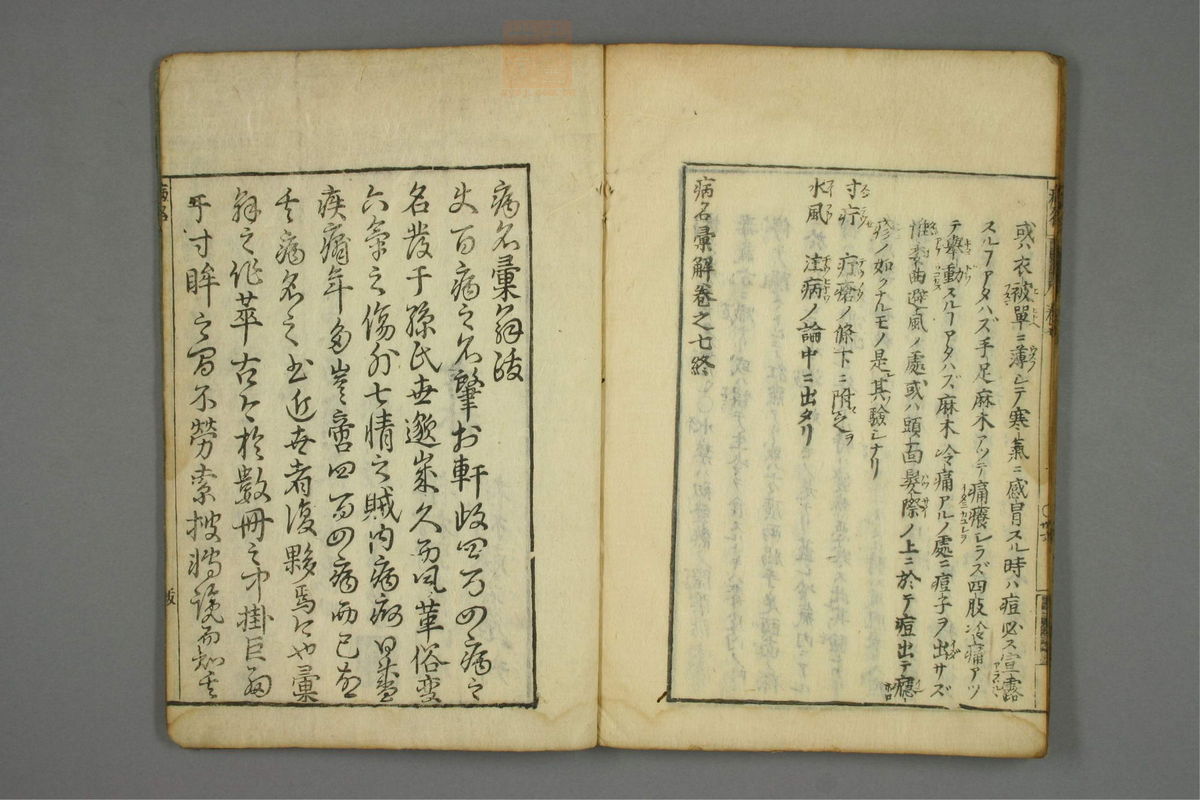 或ハ衣被單ニ薄シテ寒氣ニ感冒スル時ハ痘必ス宣露
スルヿアタハズ手足麻木アツテ痛癢シラズ四肢冷痛アツ
テ擧動スルヿアタハズ麻木冷痛アルノ處ニ痘子ヲ出サズ
惟委曲避風ノ處或ハ頭面髮際ノ上ニ於テ痘出テ癮
疹ノ如クナルモノ是其驗シナリ
寸疔 痘瘡ノ條下ニ附之ヲ
水風 注病ノ論中ニ出タリ
病名彙解卷之七終
病名彙解跋
夫百病之名肇於軒岐四百四病之
名發于孫氏世邈歳久而風革俗変
六氣之傷外七情之賊内病痾日盛
疾痛年多豈啻四百四病而已
其病名之書近世者復夥焉
解之作萃古今於數冊之中掛巨細
于寸眸之間不勞索搜